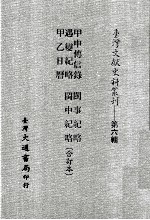 臺灣文獻史料叢刊 第六輯
甲申傳信錄 閩事紀略
遇變紀略 閩中紀略
甲乙日曆 〔合訂本〕
臺灣大通書局印行